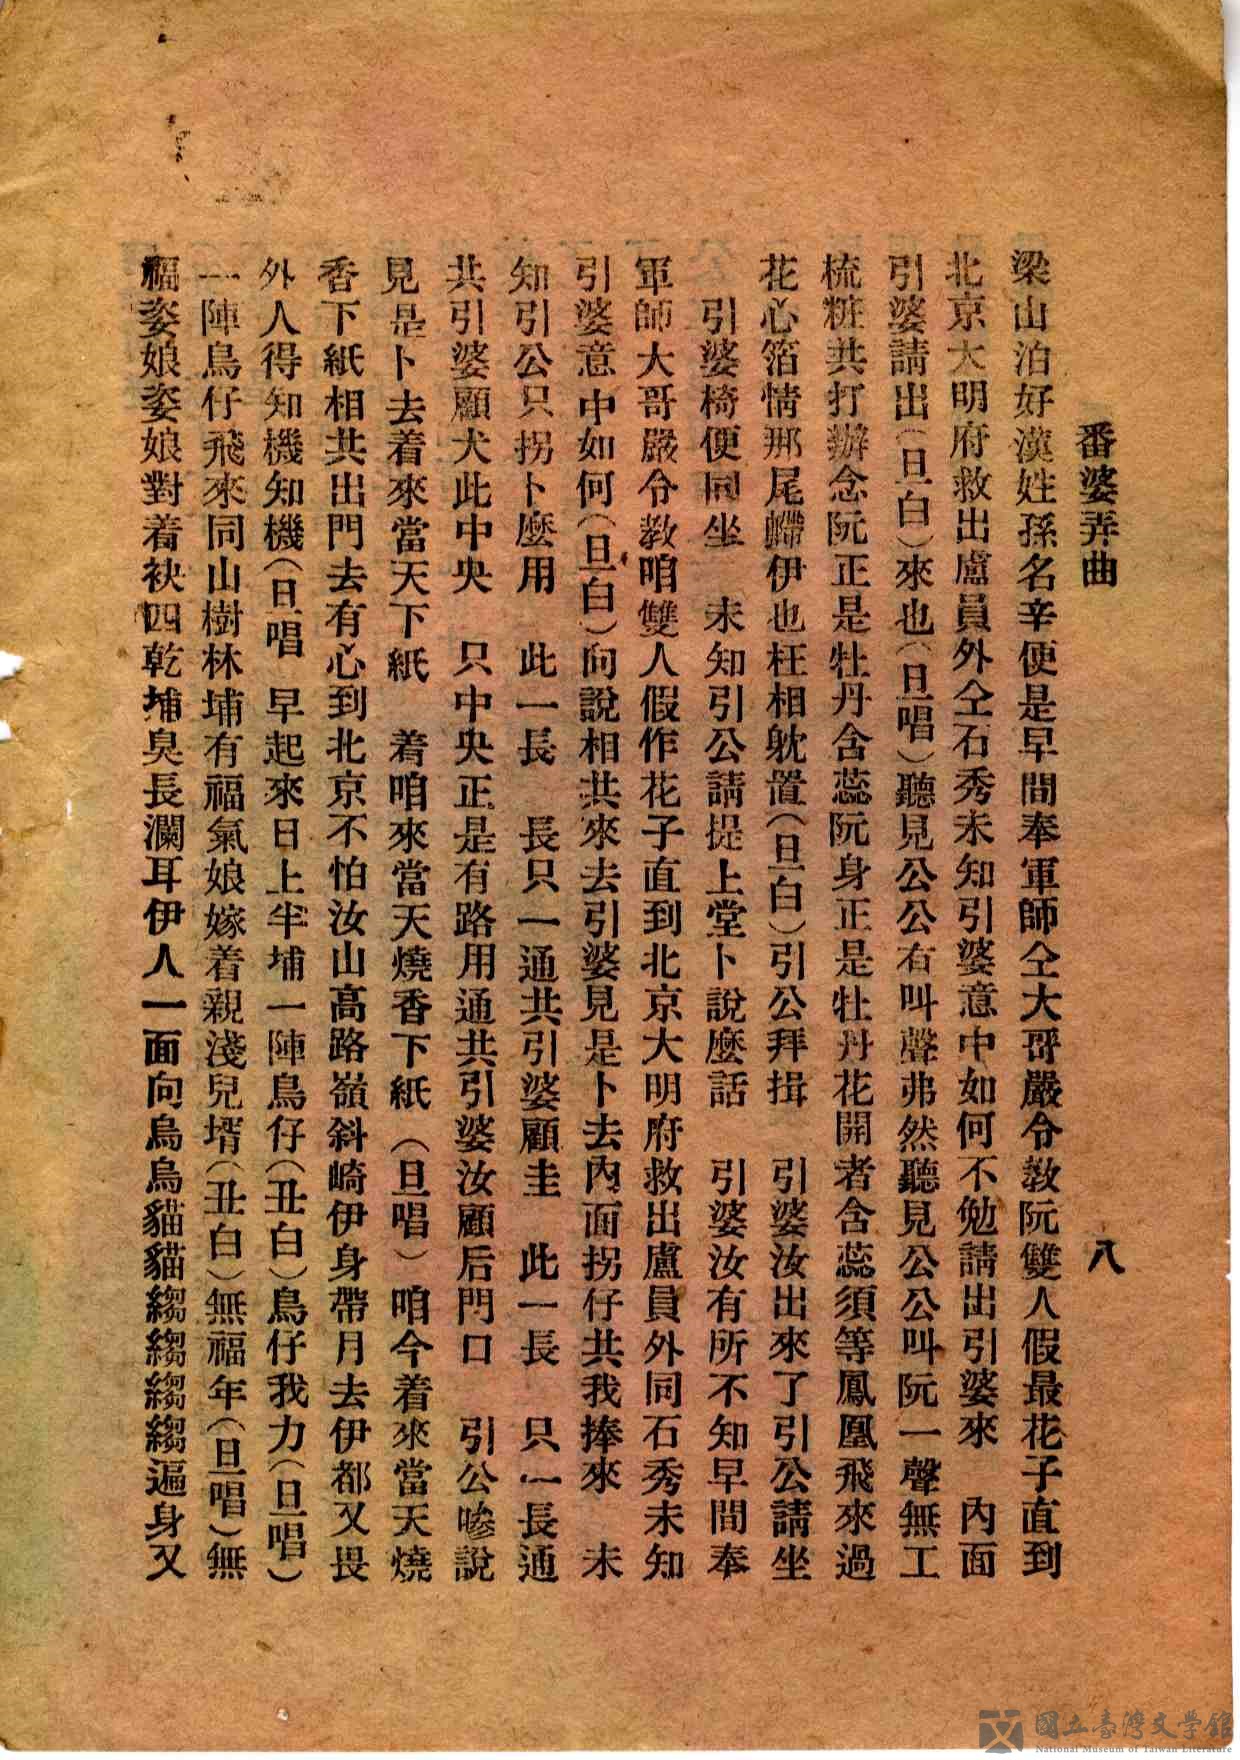 番婆弄曲　八
梁山泊好漢姓孫名辛便是早間奉軍師仝大哥嚴令教阮雙人假最花子直到
北京大明府救出盧員外仝石秀未知引婆意中如何不勉請出引婆來　內面
引婆請出(旦白)來也(旦唱)聽見公公有叫聲弗然聽見公公叫阮一聲無工
梳粧共打辦念阮正是牡丹含蕊阮身正是牡丹花開者含蕊須等鳳凰飛來過
花心箔情那尾蹛伊也枉相躭置(旦白)引公拜揖　引婆汝出來了引公請坐
引婆椅便同坐　未知引公請提上堂卜說麽話　引婆汝有所不知早間奉
軍師大哥嚴令教咱雙人假作花子直到北京大明府救出盧員外同石秀未知
引婆意中如何(旦白)向說相共來去引婆見是卜去內面拐仔共我捧來　未
知引公只拐卜麽用　此一長　長只一通共引婆顧圭　此一長　只一長通
共引婆顧犬此中央　只中央正是有路用通共引婆汝顧后門口　引公嘇說
見是卜去着來當天下紙　着咱來當天燒香下紙　(旦唱)咱今着來當天燒
香下紙相共出門去有心到北京不怕汝山高路嶺斜崎伊身帶月去伊都又畏
外人得知機知機(旦唱　早起來日上半埔一陣鳥仔(丑白)鳥仔我力(旦唱)
一陣鳥仔飛來同山樹林埔有福氣娘嫁着親淺兒壻(丑白)無福年(旦唱)無
福姿娘姿娘對着袂四乾埔臭長瀾耳伊人一面向烏烏貓貓縐縐縐縐遍身又
國立臺灣文學館
National Museum of Taiwan Literature